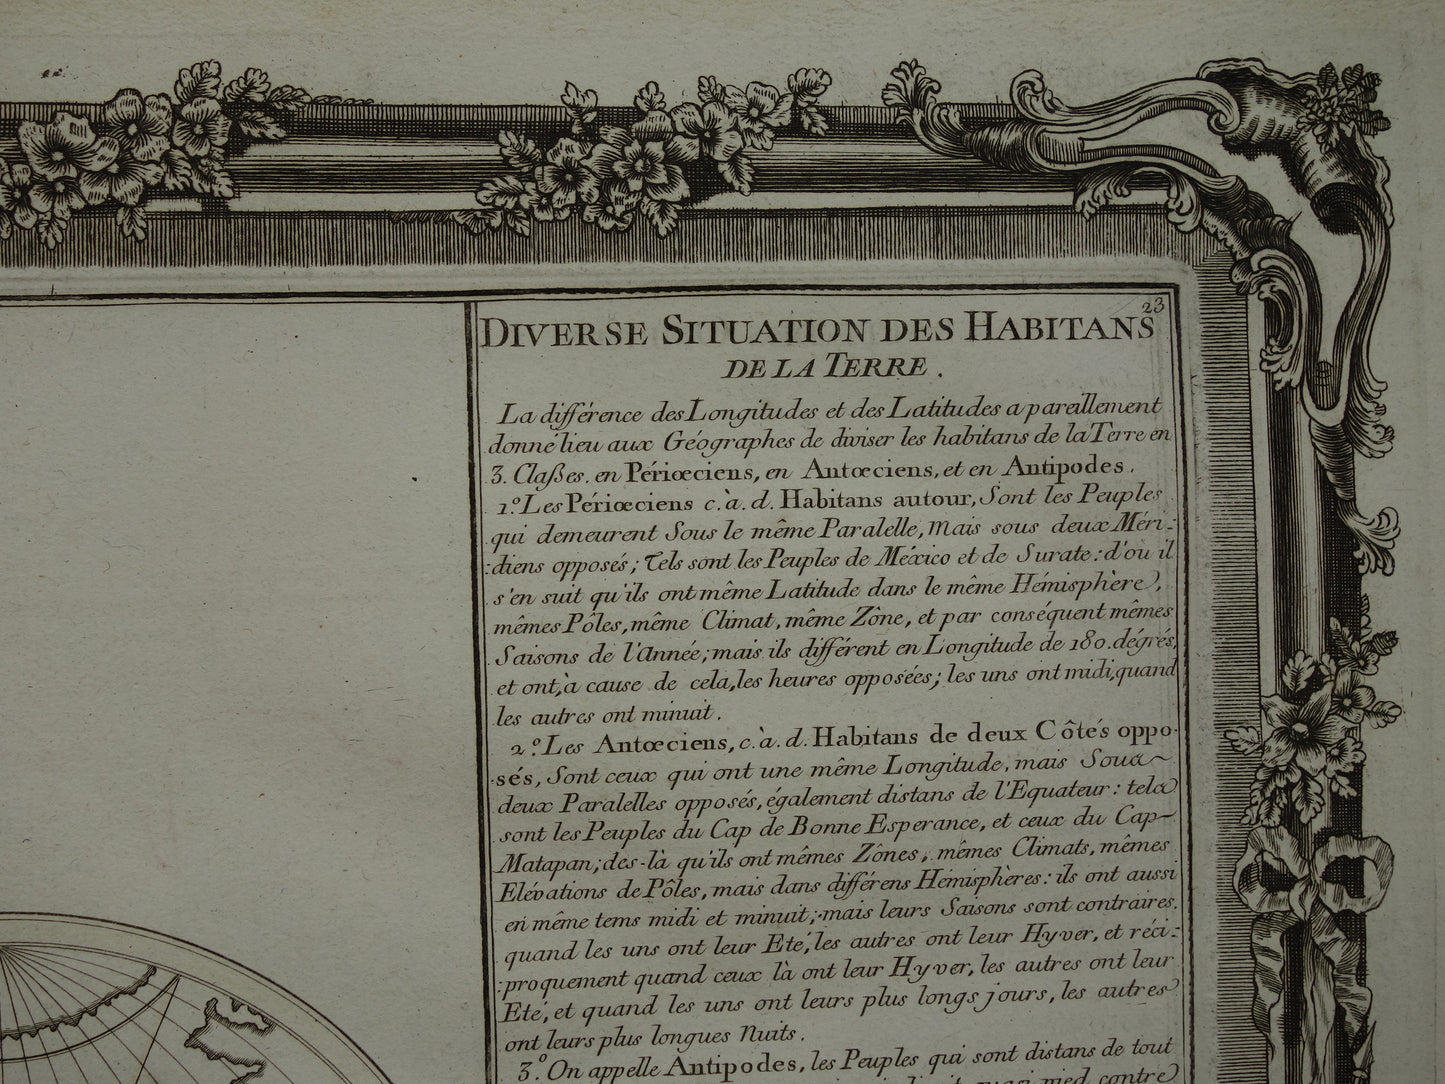 23
DIVERSE SITUATION DES HABITANS
DE LA TERRE.
La différence des Longitudes et des Latitudes a pareillement
donné lieu aux Géographes de diviser les habitans de la Terre en
3. Claßes. en Périœciens, en Antœciens, et en Antipodes.
1.º Les Périœciens c.à.d. Habitans autour, Sont les Peuples
qui demeurent Sous le même Paralelle, Mais sous deux Méri-
:diens opposés; Tels sont les Peuples de México et de Surate: d'ou il
s'en suit qu'ils ont même Latitude dans le même Hémisphère,
mêmes Pôles, même Climat, même Zône, et par conséquent mêmes
Saisons de l'Année; mais ils différent en Longitude de 180. dégrés,
et ont, à cause de cela, les heures opposées; les uns ont midi, quand
les autres ont minuit.
2.º Les Antœciens, c.à.d. Habitans de deux Côtés oppo-
-sés, Sont ceux qui ont une même Longitude, mais Sous
deux Paralelles opposés, également distans de l'Equateur: tels
sont les Peuples du Cap de Bonne Esperance, et ceux du Cap
Matapan; des-là qu'ils ont mêmes Zônes, mêmes Climats, mêmes
Elévations de Pôles, mais dans différens Hémisphères: ils ont aussi
en même tems midi et minuit; mais leurs Saisons sont contraires.
quand les uns ont leur Eté, les autres ont leur Hyver, et réci-
:proquement quand ceux là ont leur Hyver, les autres ont leur
Eté, et quand les uns ont leurs plus longs jours, les autres
ont leurs plus longues Nuits.
3.º On appelle Antipodes, les Peuples qui sont distans de tout
quasi pied contre